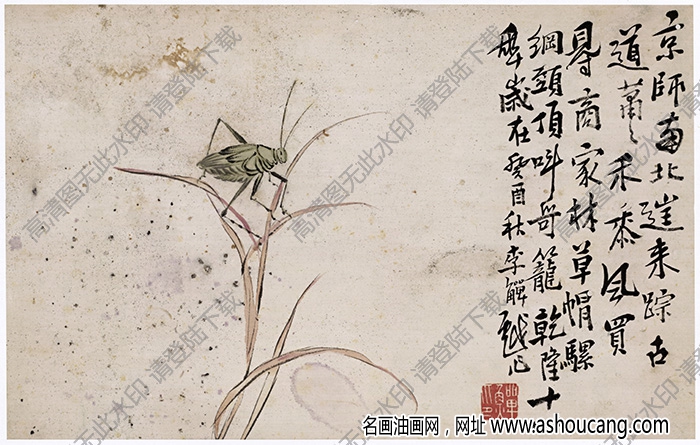 京師南北來踪古
道蕭々禾黍風買
得商家草帽騾
綱頭頂叫哥籠乾隆十
八年歲在癸酉秋李觶戲作
高清图无此水印 请登陆下载
高清图无此水印 请登陆下载
高清图无此水印 请登陆下载
高清图无此水印 请登陆下载
高清图无此水印 请登陆下载
名画油画网，网址 www.ashoucang.com